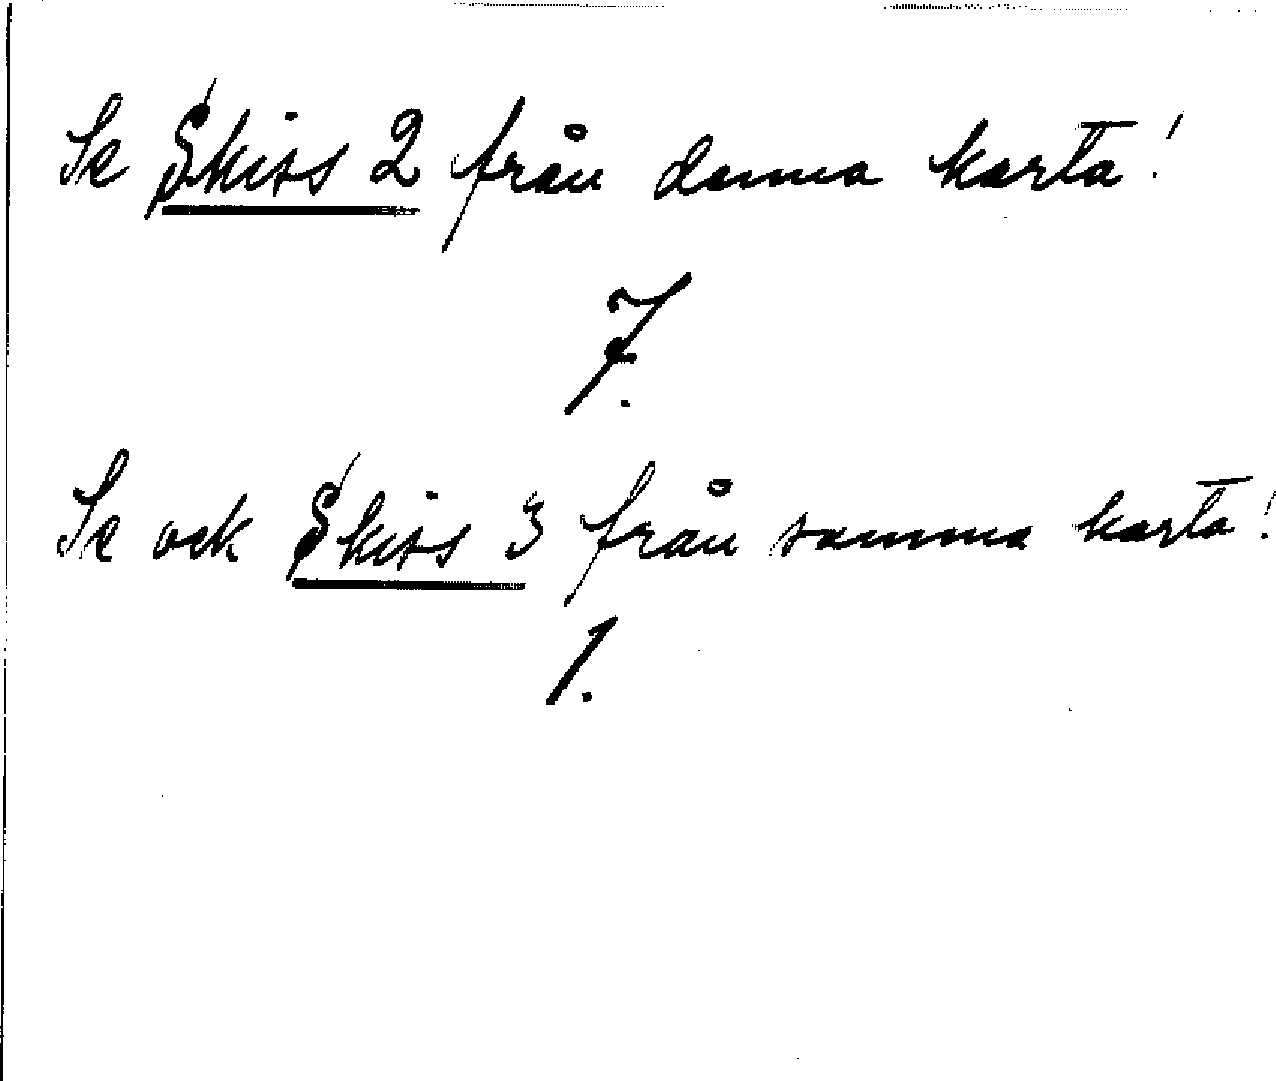 Se Skiss 2 från denna karta!
7.
Se ock Skiss 3 från samma karta!
1.